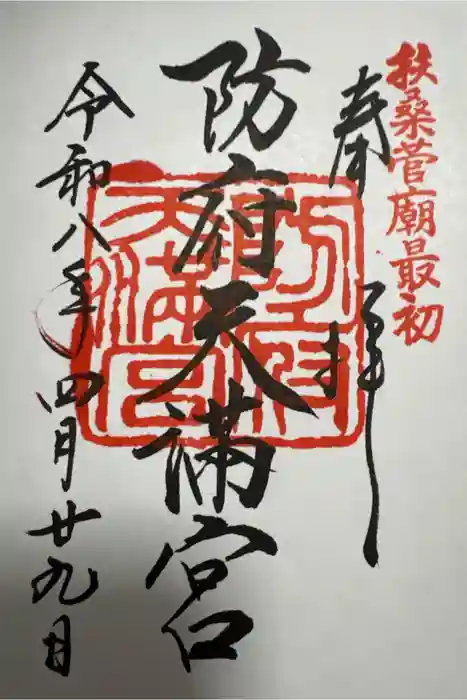 扶桑菅廟最初
奉拝
防府天満宮
防府天満宮
令和八年四月廿九日